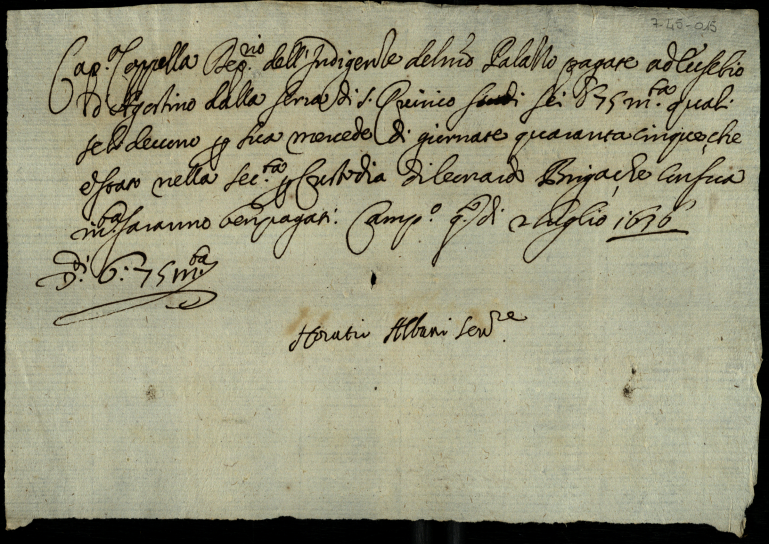 7-45-015
Cap.ª Coppella Dep.rio dell'Indigente del nrõ Palazzo pagate ad Eusebio
d'Agostino dalla serra di s. Quirico scudi sei & 75 m.ta quali
se li devono p sua mercede di giornate quaranta cinque, che
è stato nella sec.ta p Custodia di leonardo Briga, che con sua
m.ta saranno ben pagati. Camp.º q.º di 2 luglio 1636
D.di 6: 75 m.ta
Horatio Albani sen.re